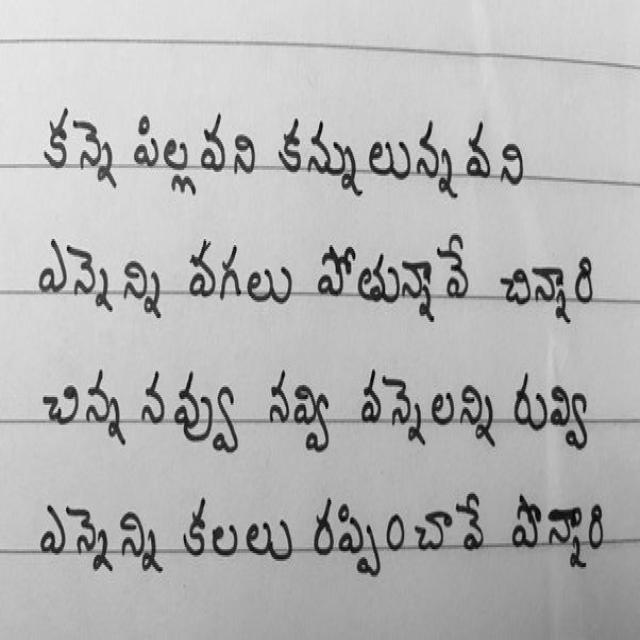 కన్నె పిల్లవని కన్నులున్నవని
ఎన్నెన్ని వగలు పోతున్నావే చిన్నారి
చిన్న నవ్వు నవ్వి వన్నెలన్ని రువ్వి
ఎన్నెన్ని కలలు రప్పించావే పొన్నారి